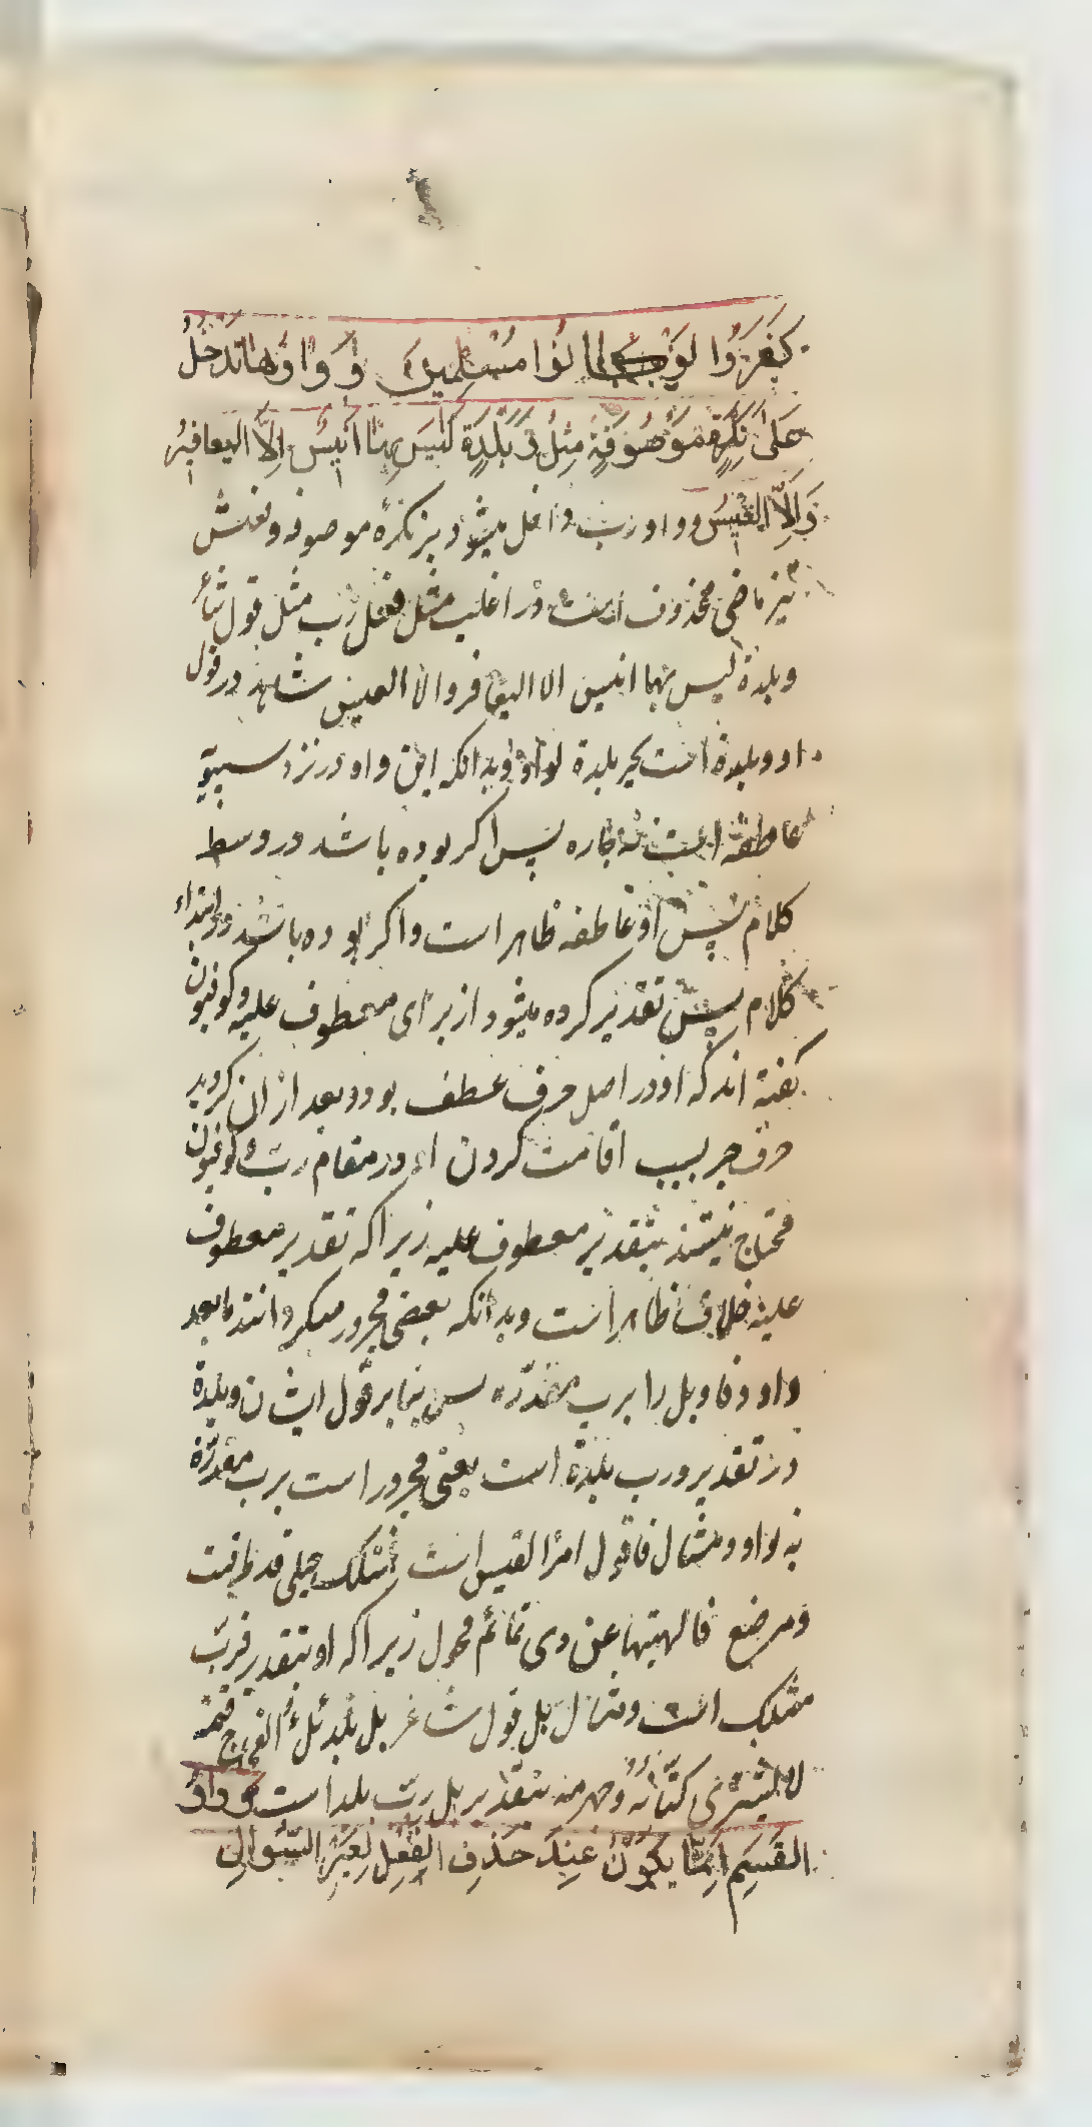 كَفَرُوا لَوْ كَانُوا مُسْلِمِينَ وَ وَاوُهَا تَدْخُلُ
عَلَى نَكِرَةٍ مَوْصُوفَةٍ مِثْلُ وَ بَلْدَةٍ لَيْسَ بِهَا اَنِيسُ اِلَّا اليَعَافِيرُ
وَاِلَّا العِيسُ و واو رب داخل میشود بر نکرهٔ موصوفه و فعلش
نیز ماضی محذوف است در اغلب مثل فعل رب مثل قول شاعر
وبلدة لیس بها انیس الا الیعافر والا العیس شاهد در قول
او وبلدة است بجر بلدة بواو و بدانکه این واو در نزد سیبویه
عاطفه است نه جاره پس اکر بوده باشد در وسط
کلام پس او عاطفه ظاهر است و اکر بوده باشد در ابتداء
کلام پس تقدیر کرده میشود از برای معطوف علیه و کوفیون
کفته اند که او در اصل حرف عطف بود و بعد از ان کردید
حرف جر بسبب اقامت کردن او در مقام رب و کوفیون
محتاج نیستند بتقدیر معطوف علیه زیرا که تقدیر معطوف
علیه خلاف ظاهر است و بدانکه بعضی مجرور میکردانند مابعد
واو و فا و بل را برب مقدره پس بنا بر قول ایشان وبلدة
در تقدیر ورب بلدة است یعنی مجرور است برب مقدرة
نه بواو و مثال فا قول امرا القیس است فمثلک حبلی قد طرقت
ومرضع فالهیتها عن ذی تمائم محول زیرا که او بتقدیر فرب
مثلک است و مثال بل قول شاعر بل بلد ملءُ الفجاج قتمه
لا یشتری کتّانُهُ وجهرمه بتقدیر بل رب بلد است وَ وَاوُ
القَسَمِ اِنَّمَا يَكُونُ عِنْدَ حَذْفِ الفِعْلِ لِغَيْرِ السُّوالِ